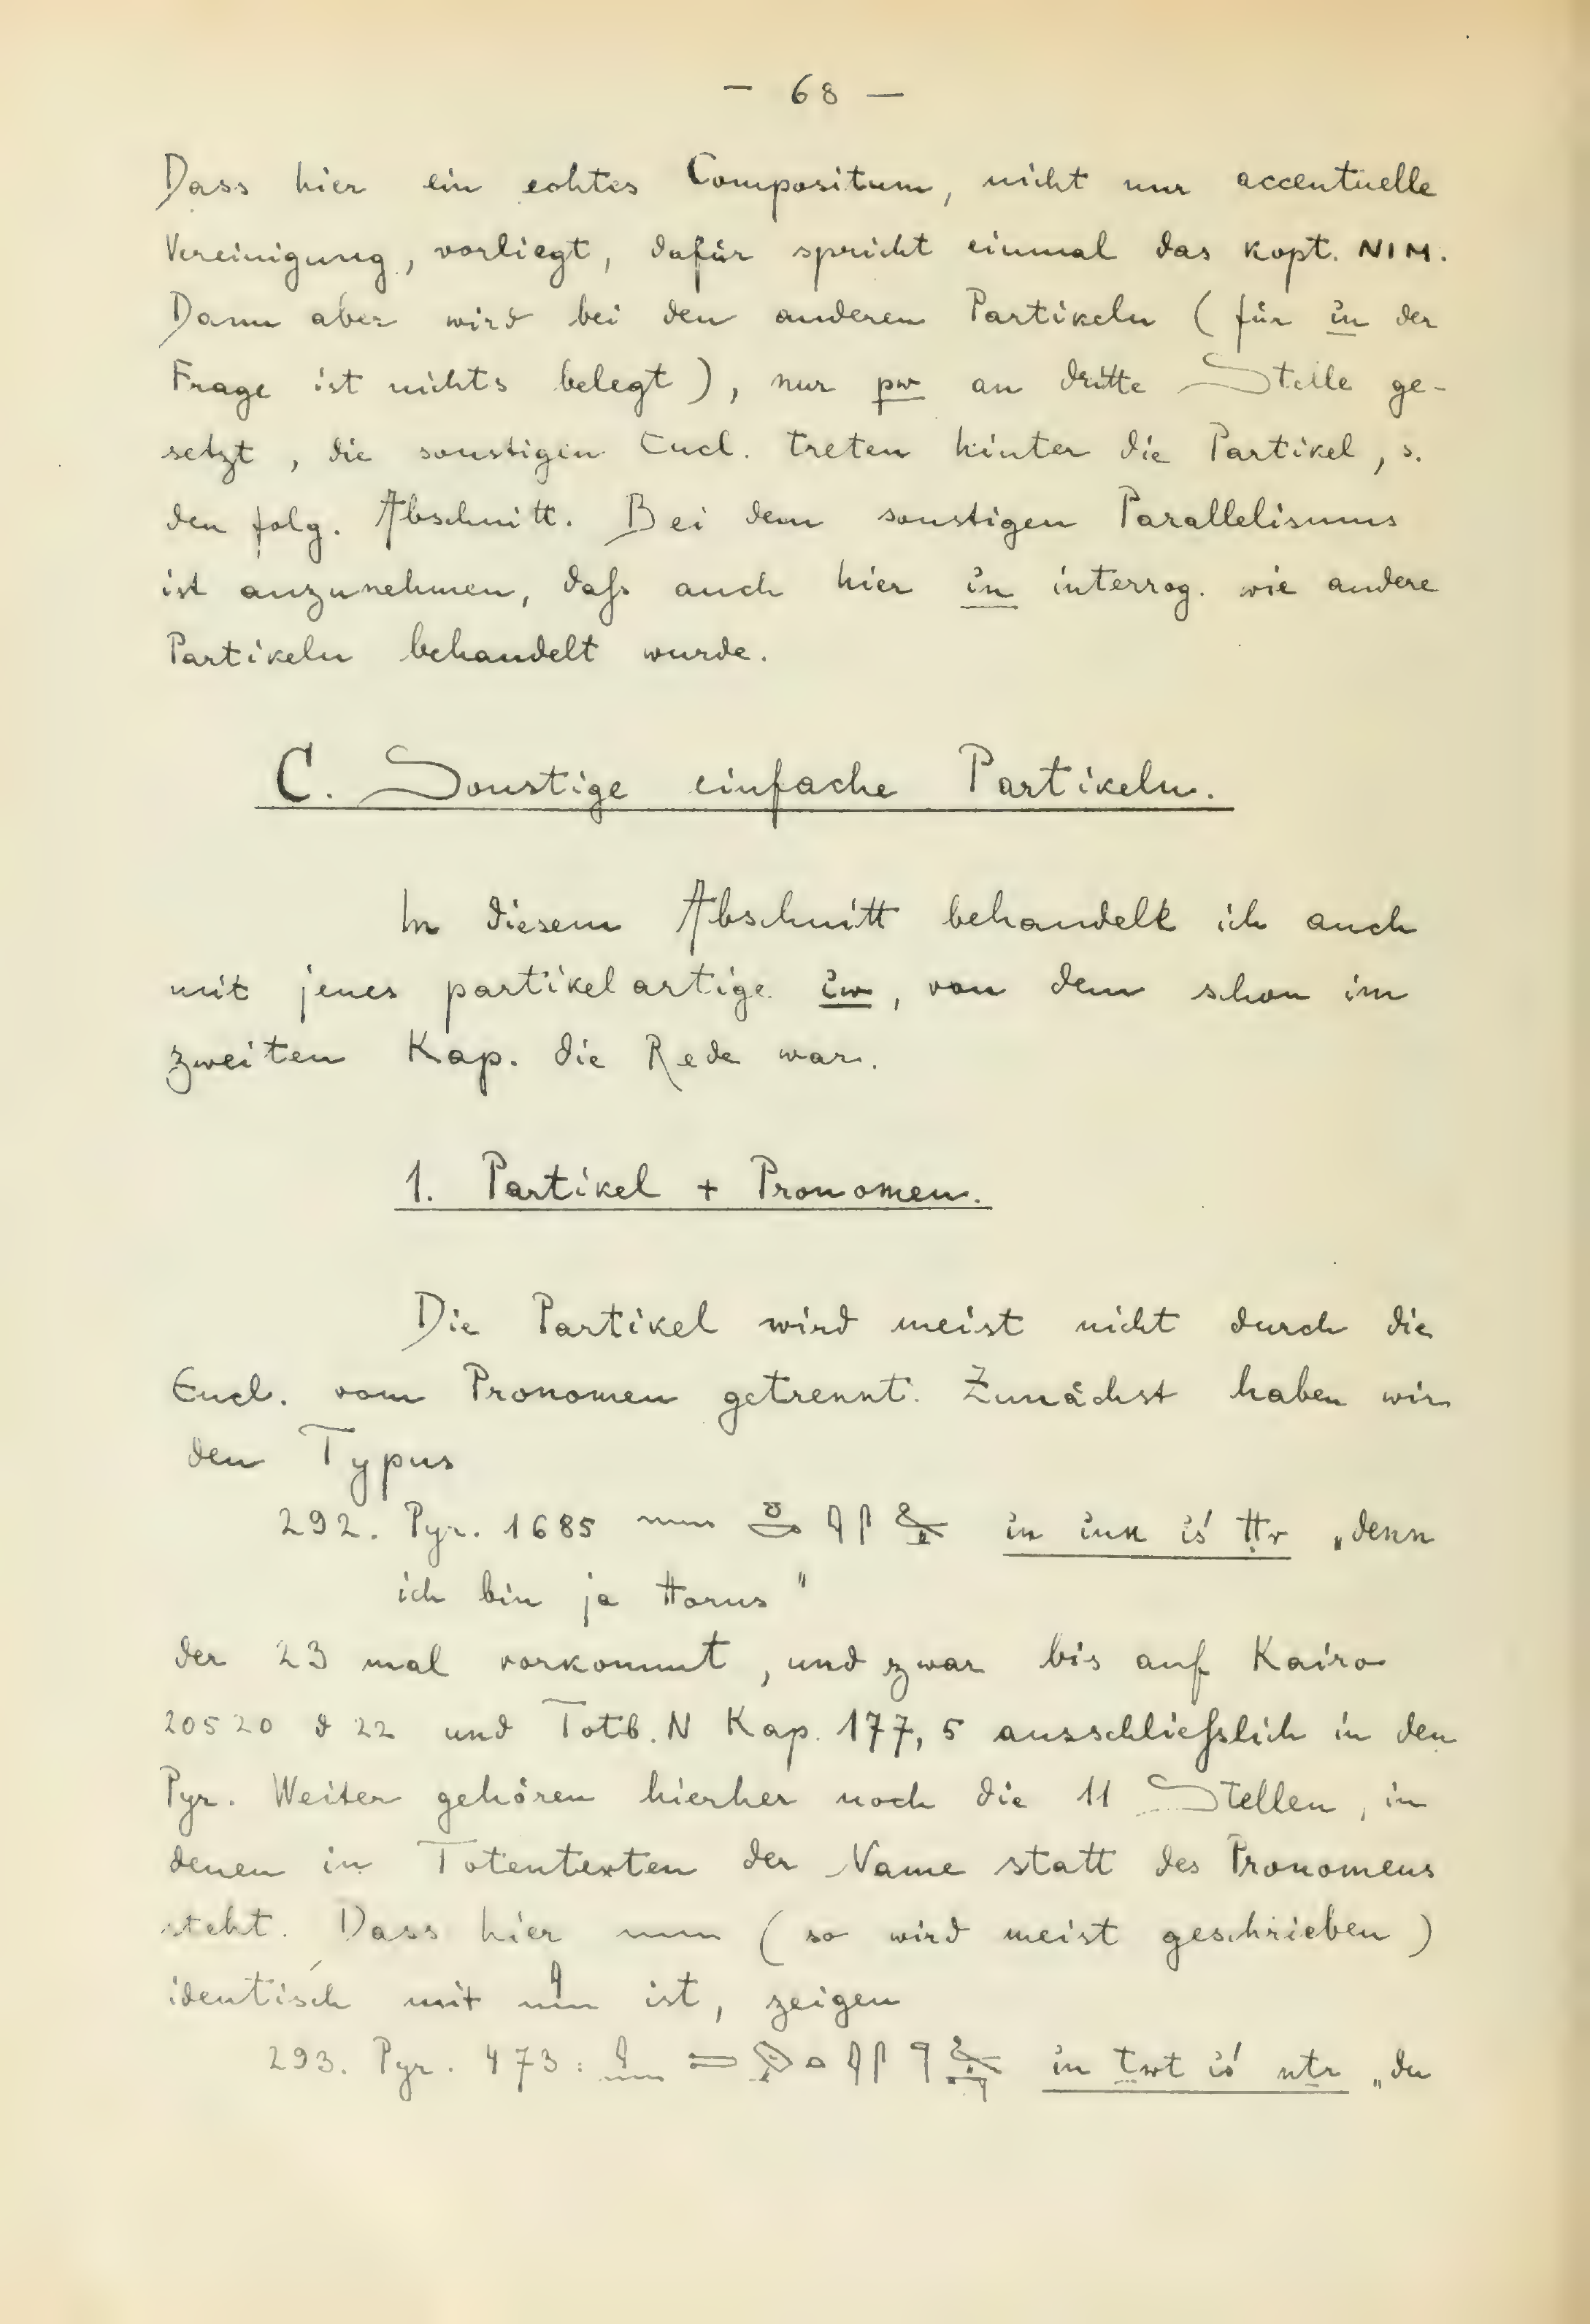 — 68 —
Dass hier ein echtes Compositum, nicht nur accentuelle
Vereinigung, vorliegt, dafür spricht einmal das kopt. ⲚⲒⲘ.
Dann aber wird bei den anderen Partikeln (für in der
Frage ist nichts belegt), nur pw an dritte Stelle ge-
setzt, die sonstigen Encl. treten hinter die Partikel, s.
den folg. Abschnitt. Bei dem sonstigen Parallelismus
ist anzunehmen, daſs auch hier in interrog. wie andere
Partikeln behandelt wurde.
C. Sonstige einfache Partikeln.
In diesem Abschnitt behandelt ich auch
mit jenes partikelartige iw, von dem schon im
zweiten Kap. die Rede war.
1. Partikel + Pronomen.
Die Partikel wird meist nicht durch die
Encl. vom Pronomen getrennt. Zunächst haben wir
den Typus
292. Pyr. 1685 in ink iś Ḥr „denn
ich bin ja Horus"
der 23 mal vorkommt, und zwar bis auf Kairo
20520 d 22 und Totb. N Kap. 177, 5 ausschlieſslich in den
Pyr. Weiter gehören hierher noch die 11 Stellen, in
denen in Totentexten der Name statt des Pronomens
steht. Dass hier 𓈖 (so wird meist geschrieben)
identisch mit 𓇋𓈖 ist, zeigen
293. Pyr. 473: in ṯwt iś nṯr „du